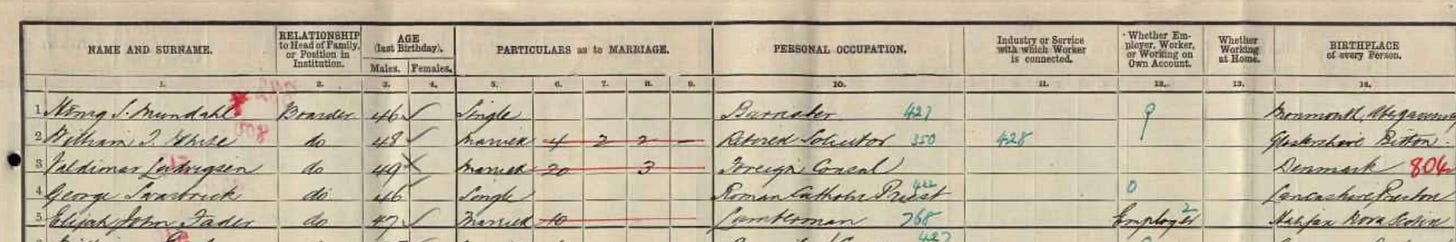 NAME AND SURNAME. RELATIONSHIP to Head of Family, or Position in Institution. AGE (last Birthday). PARTICULARS as to MARRIAGE. PERSONAL OCCUPATION. Industry or Service with which Worker is connected. Whether Employer, Worker, or Working on Own Account. Whether Working at Home. BIRTHPLACE of every Person.
Males. Females.
1. 2. 3. 4. 5. 6. 7. 8. 9. 10. 11. 12. 13. 14.
1 Boarder 46 Single Barrister 427 Monmouth, Abergavenny
2 William J. do 48 Married 4 2 2 - Retired Solicitor 350 428 Bitton
3 Valdimar Ludvigsen do 49 Married 20 3 Foreign Consul Denmark 806
4 George do 46 Single Roman Catholic Priest 422 0 Lancashire Preston
5 Elijah John Fader do 47 Married 10 Lumberman 768 Employer 2 Halifax Nova Scotia
427